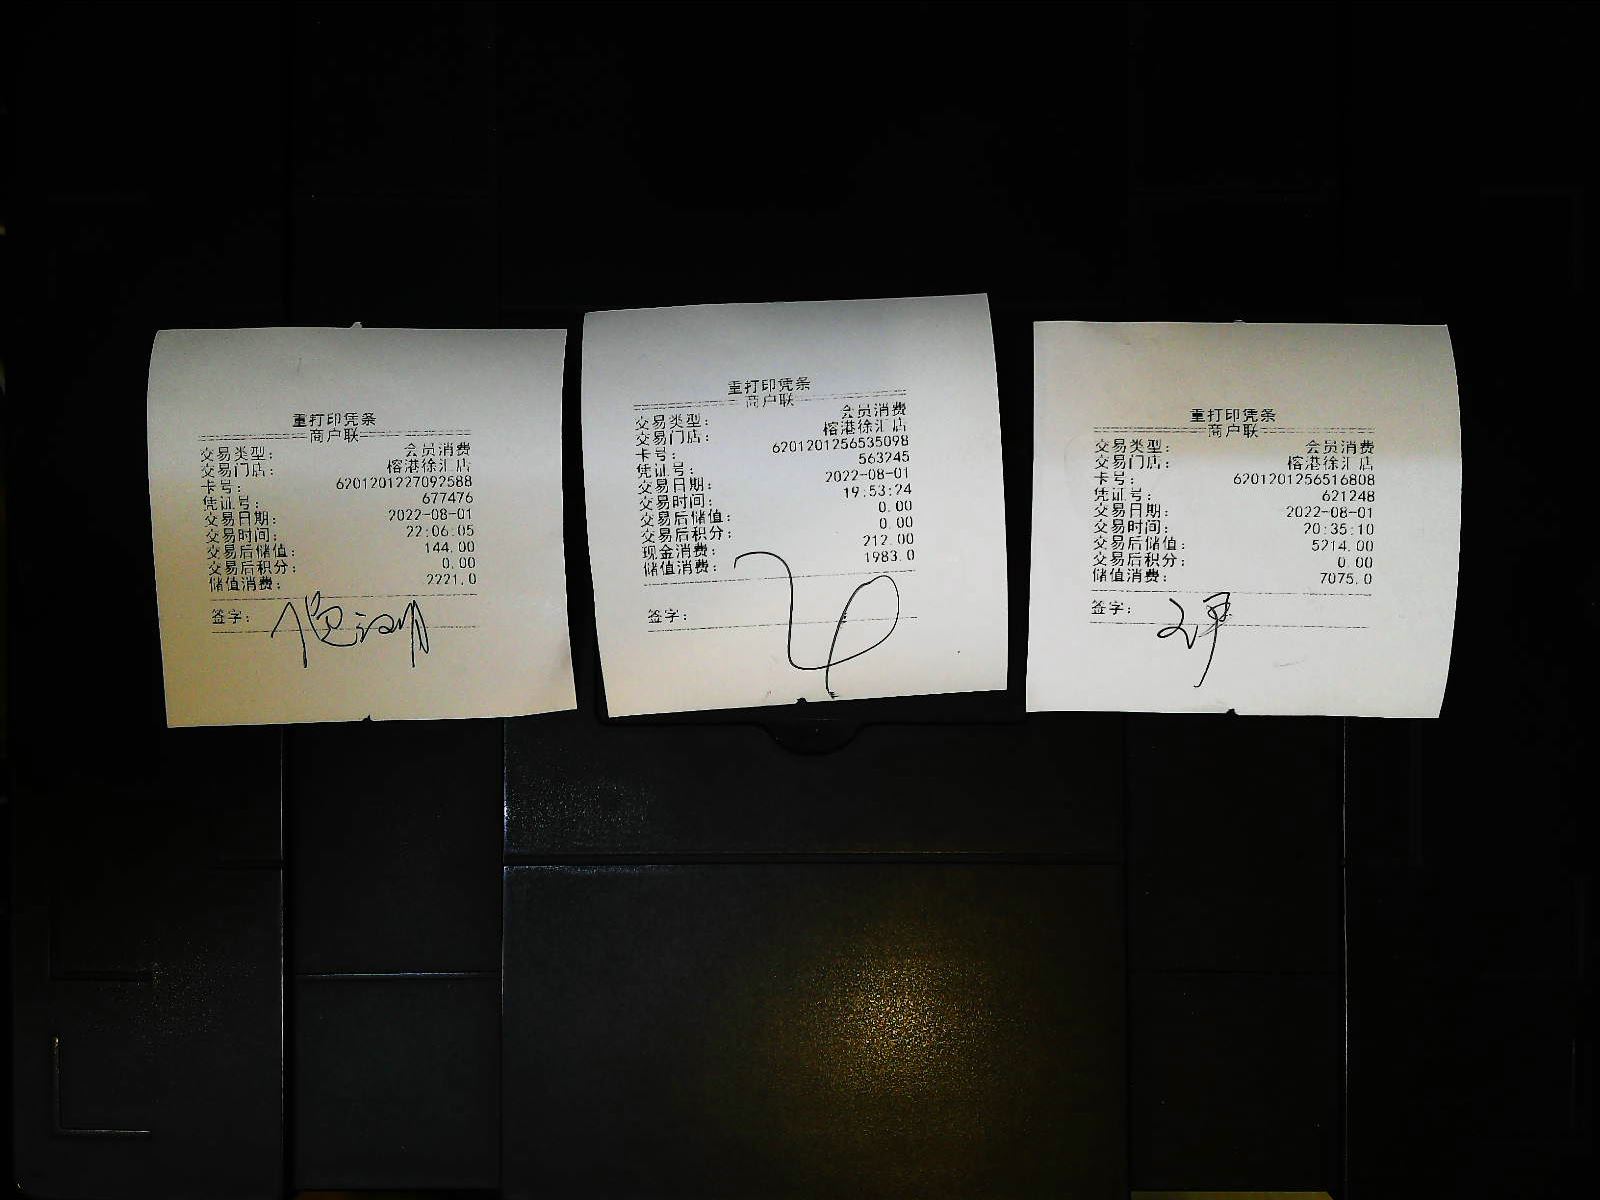 重打印凭条
商户联
交易类型: 会员消费
交易门店: 榕港徐汇店
卡号: 6201201227092588
凭证号: 677476
交易日期: 2022-08-01
交易时间: 22:06:05
交易后储值: 144.00
交易后积分: 0.00
储值消费: 2221.0
签字:
重打印凭条
商户联
交易类型: 会员消费
交易门店: 榕港徐汇店
卡号: 6201201256535098
凭证号: 563245
交易日期: 2022-08-01
交易时间: 19:53:24
交易后储值: 0.00
交易后积分: 0.00
现金消费: 212.00
储值消费: 1983.0
签字:
重打印凭条
商户联
交易类型: 会员消费
交易门店: 榕港徐汇店
卡号: 6201201256516808
凭证号: 621248
交易日期: 2022-08-01
交易时间: 20:35:10
交易后储值: 5214.00
交易后积分: 0.00
储值消费: 7075.0
签字: